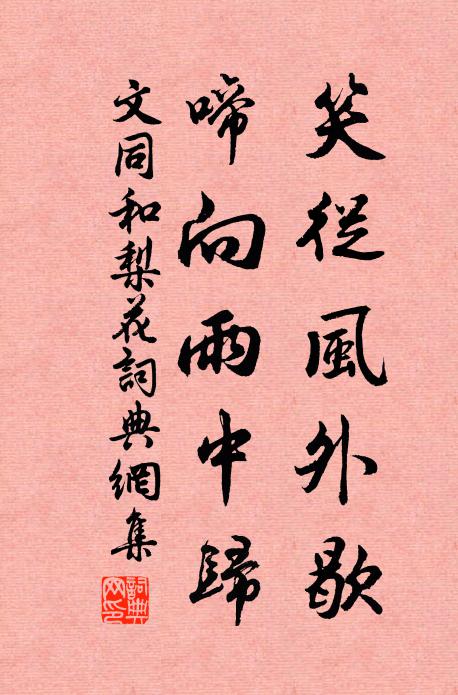 笑從風外歇
啼向雨中歸
文同和梨花詞典網集
詞典
网印